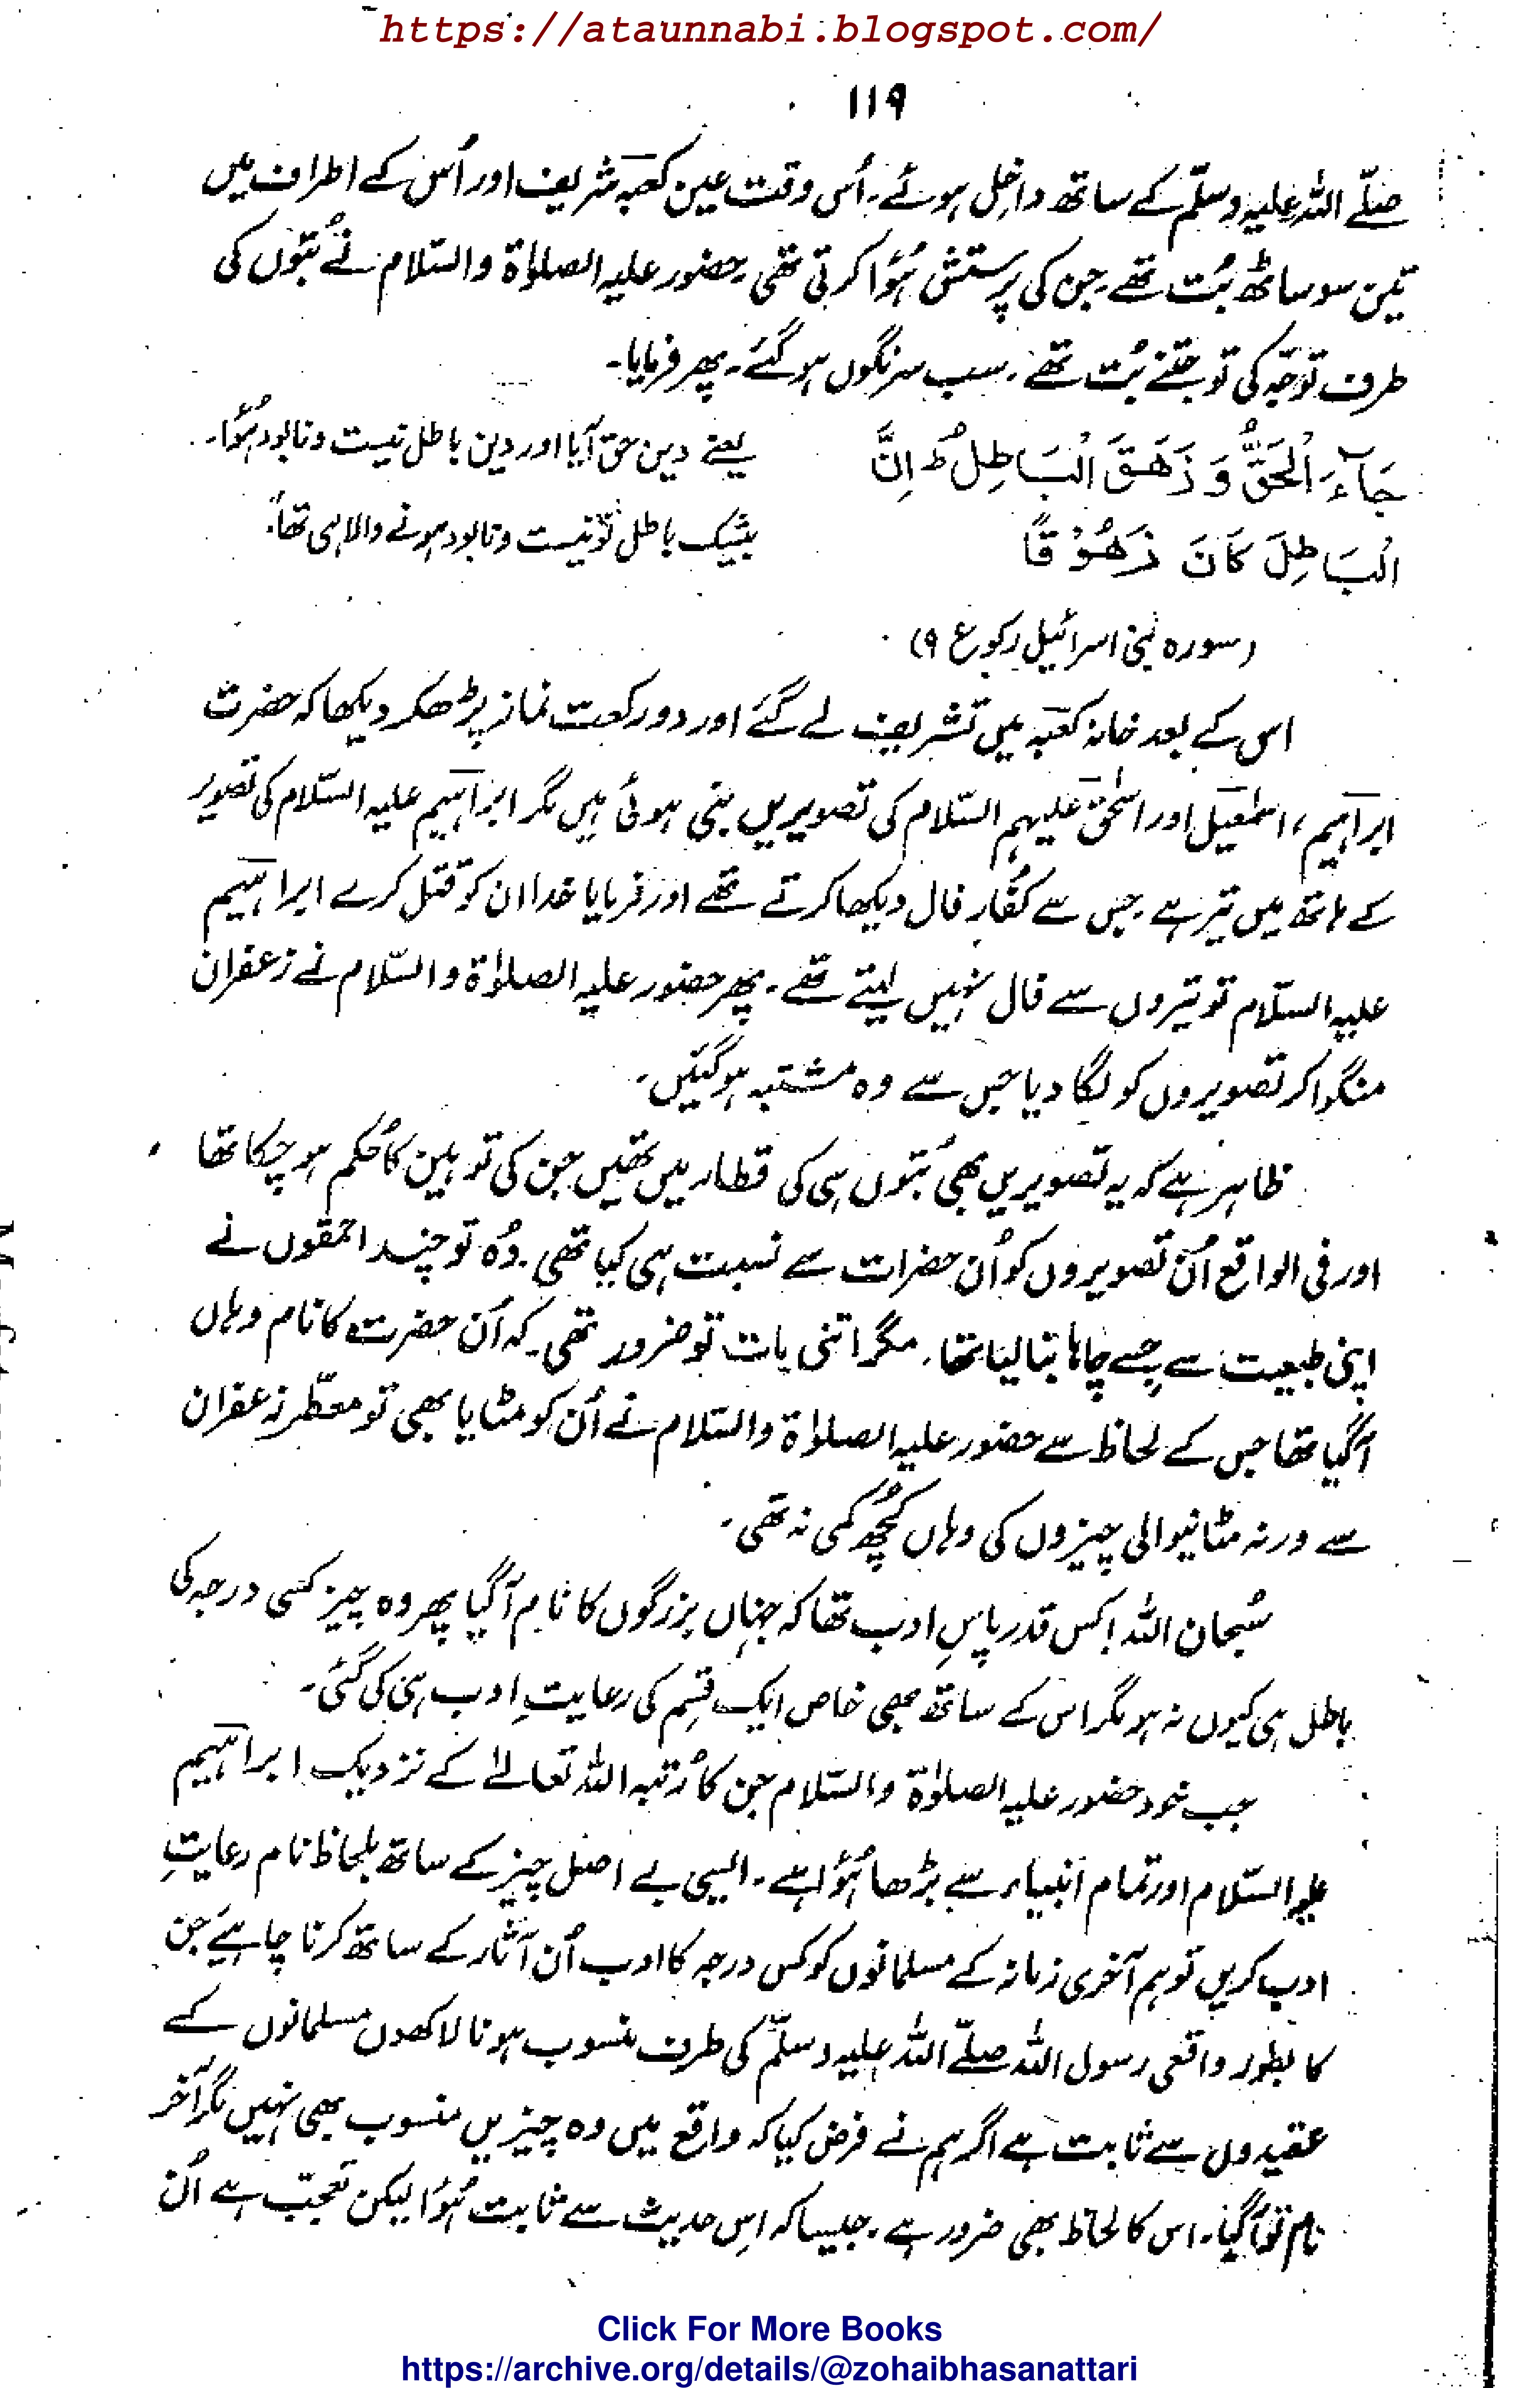 https://ataunnabi.blogspot.com/
۱۱۹
صلّے اللہ علیہ وسلّم کے ساتھ داخل ہوئے۔ اُس وقت عین کعبہ شریف اور اُس کے اطراف میں
تین سو ساٹھ بُت تھے جن کی پرستش ہُوا کرتی تھی۔ حضور علیہ الصلوٰۃ والسّلام نے بُتوں کی
طرف توجّہ کی تو جتنے بُت تھے۔ سب سرنگوں ہو گئے۔ پھر فرمایا۔
جَآءَ الْحَقُّ وَ زَهَقَ الْبَاطِلُ ط اِنَّ
الْبَاطِلَ كَانَ زَهُوْقًا
یعنے دین حق آیا اور دین باطل نیست و نابود ہُوا۔
بیشک باطل تو نیست و نابود ہونے والا ہی تھا۔
(سورہ بنی اسرائیل رکوع ۹)
اس کے بعد خانہ کعبہ میں تشریف لے گئے اور دو رکعت نماز پڑھکر دیکھا کہ حضرت
ابراہیم، اسمٰعیل اور اسحٰق علیہم السّلام کی تصویریں بنی ہوئی ہیں مگر ابراہیم علیہ السّلام کی تصویر
کے ہاتھ میں تیر ہے جس سے کفّار فال دیکھا کرتے تھے اور فرمایا خدا ان کو قتل کرے ابراہیم
علیہ السّلام تو تیروں سے فال نہیں لیتے تھے۔ پھر حضور علیہ الصلوٰۃ والسّلام نے زعفران
منگوا کر تصویروں کو لگا دیا جس سے وہ مشتبہ ہو گئیں۔
ظاہر ہے کہ یہ تصویریں بھی بُتوں ہی کی قطار میں تھیں جن کی توہین کا حُکم ہو چکا تھا
اور فی الواقع اُن تصویروں کو اُن حضرات سے نسبت ہی کیا تھی۔ وُہ تو چند احمقوں نے
اپنی طبیعت سے جسے چاہا بنا لیا تھا۔ مگر اتنی بات تو ضرور تھی۔ کہ اُن حضرت کا نام وہاں
آگیا تھا جس کے لحاظ سے حضور علیہ الصلوٰۃ والسّلام نے اُن کو مٹایا بھی تو معطّر زعفران
سے ورنہ مٹانیوالی چیزوں کی وہاں کُچھ کمی نہ تھی۔
سُبحان اللہ! کس قدر پاسِ ادب تھا کہ جہاں بزرگوں کا نام آگیا پھر وہ چیز کسی درجہ کی
باطل ہی کیوں نہ ہو مگر اس کے ساتھ بھی خاص ایک قسم کی رعایتِ ادب ہی کی گئی۔
جب خود حضور علیہ الصلوٰۃ والسّلام جن کا رُتبہ اللہ تعالےٰ کے نزدیک ابراہیم
علیہ السّلام اور تمام انبیاء سے بڑھا ہُوا ہے۔ ایسی بے اصل چیز کے ساتھ بلحاظ نام رعایتِ
ادب کریں تو ہم آخری زمانہ کے مسلمانوں کو کس درجہ کا ادب اُن آثار کے ساتھ کرنا چاہیئے جن
کا بطور واقعی رسول اللہ صلّے اللہ علیہ وسلّم کی طرف منسوب ہونا لاکھوں مسلمانوں کے
عقیدوں سے ثابت ہے اگر ہم نے فرض کیا کہ واقع میں وہ چیزیں منسوب بھی نہیں مگر آخر
نام تو آگیا۔ اس کا لحاظ بھی ضرور ہے۔ جیسا کہ اِس حدیث سے ثابت ہُوا لیکن تعجّب ہے اُن
Click For More Books
https://archive.org/details/@zohaibhasanattari